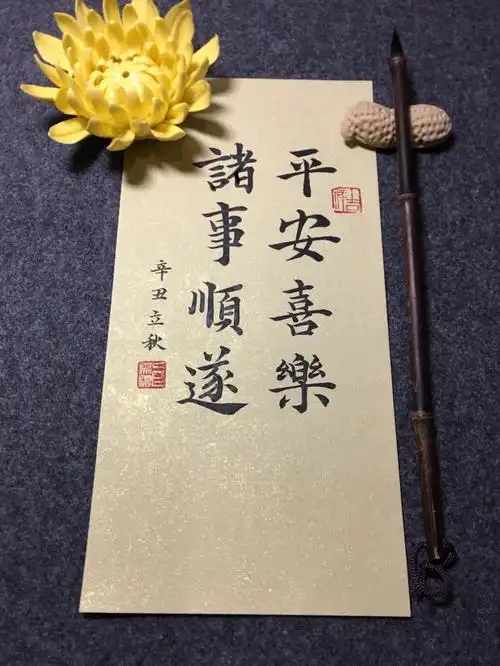 平安喜樂
諸事順遂
辛丑立秋